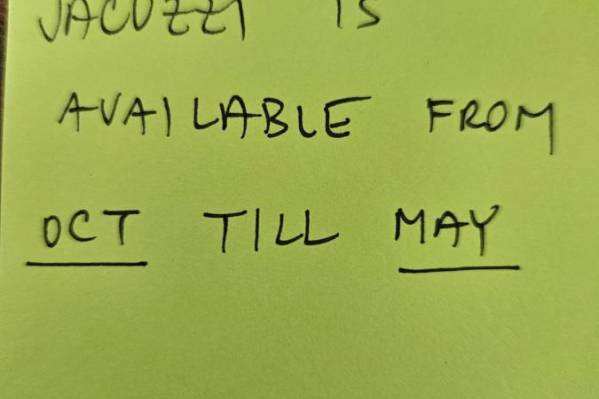 JACUZZI IS
AVAILABLE FROM
OCT TILL MAY